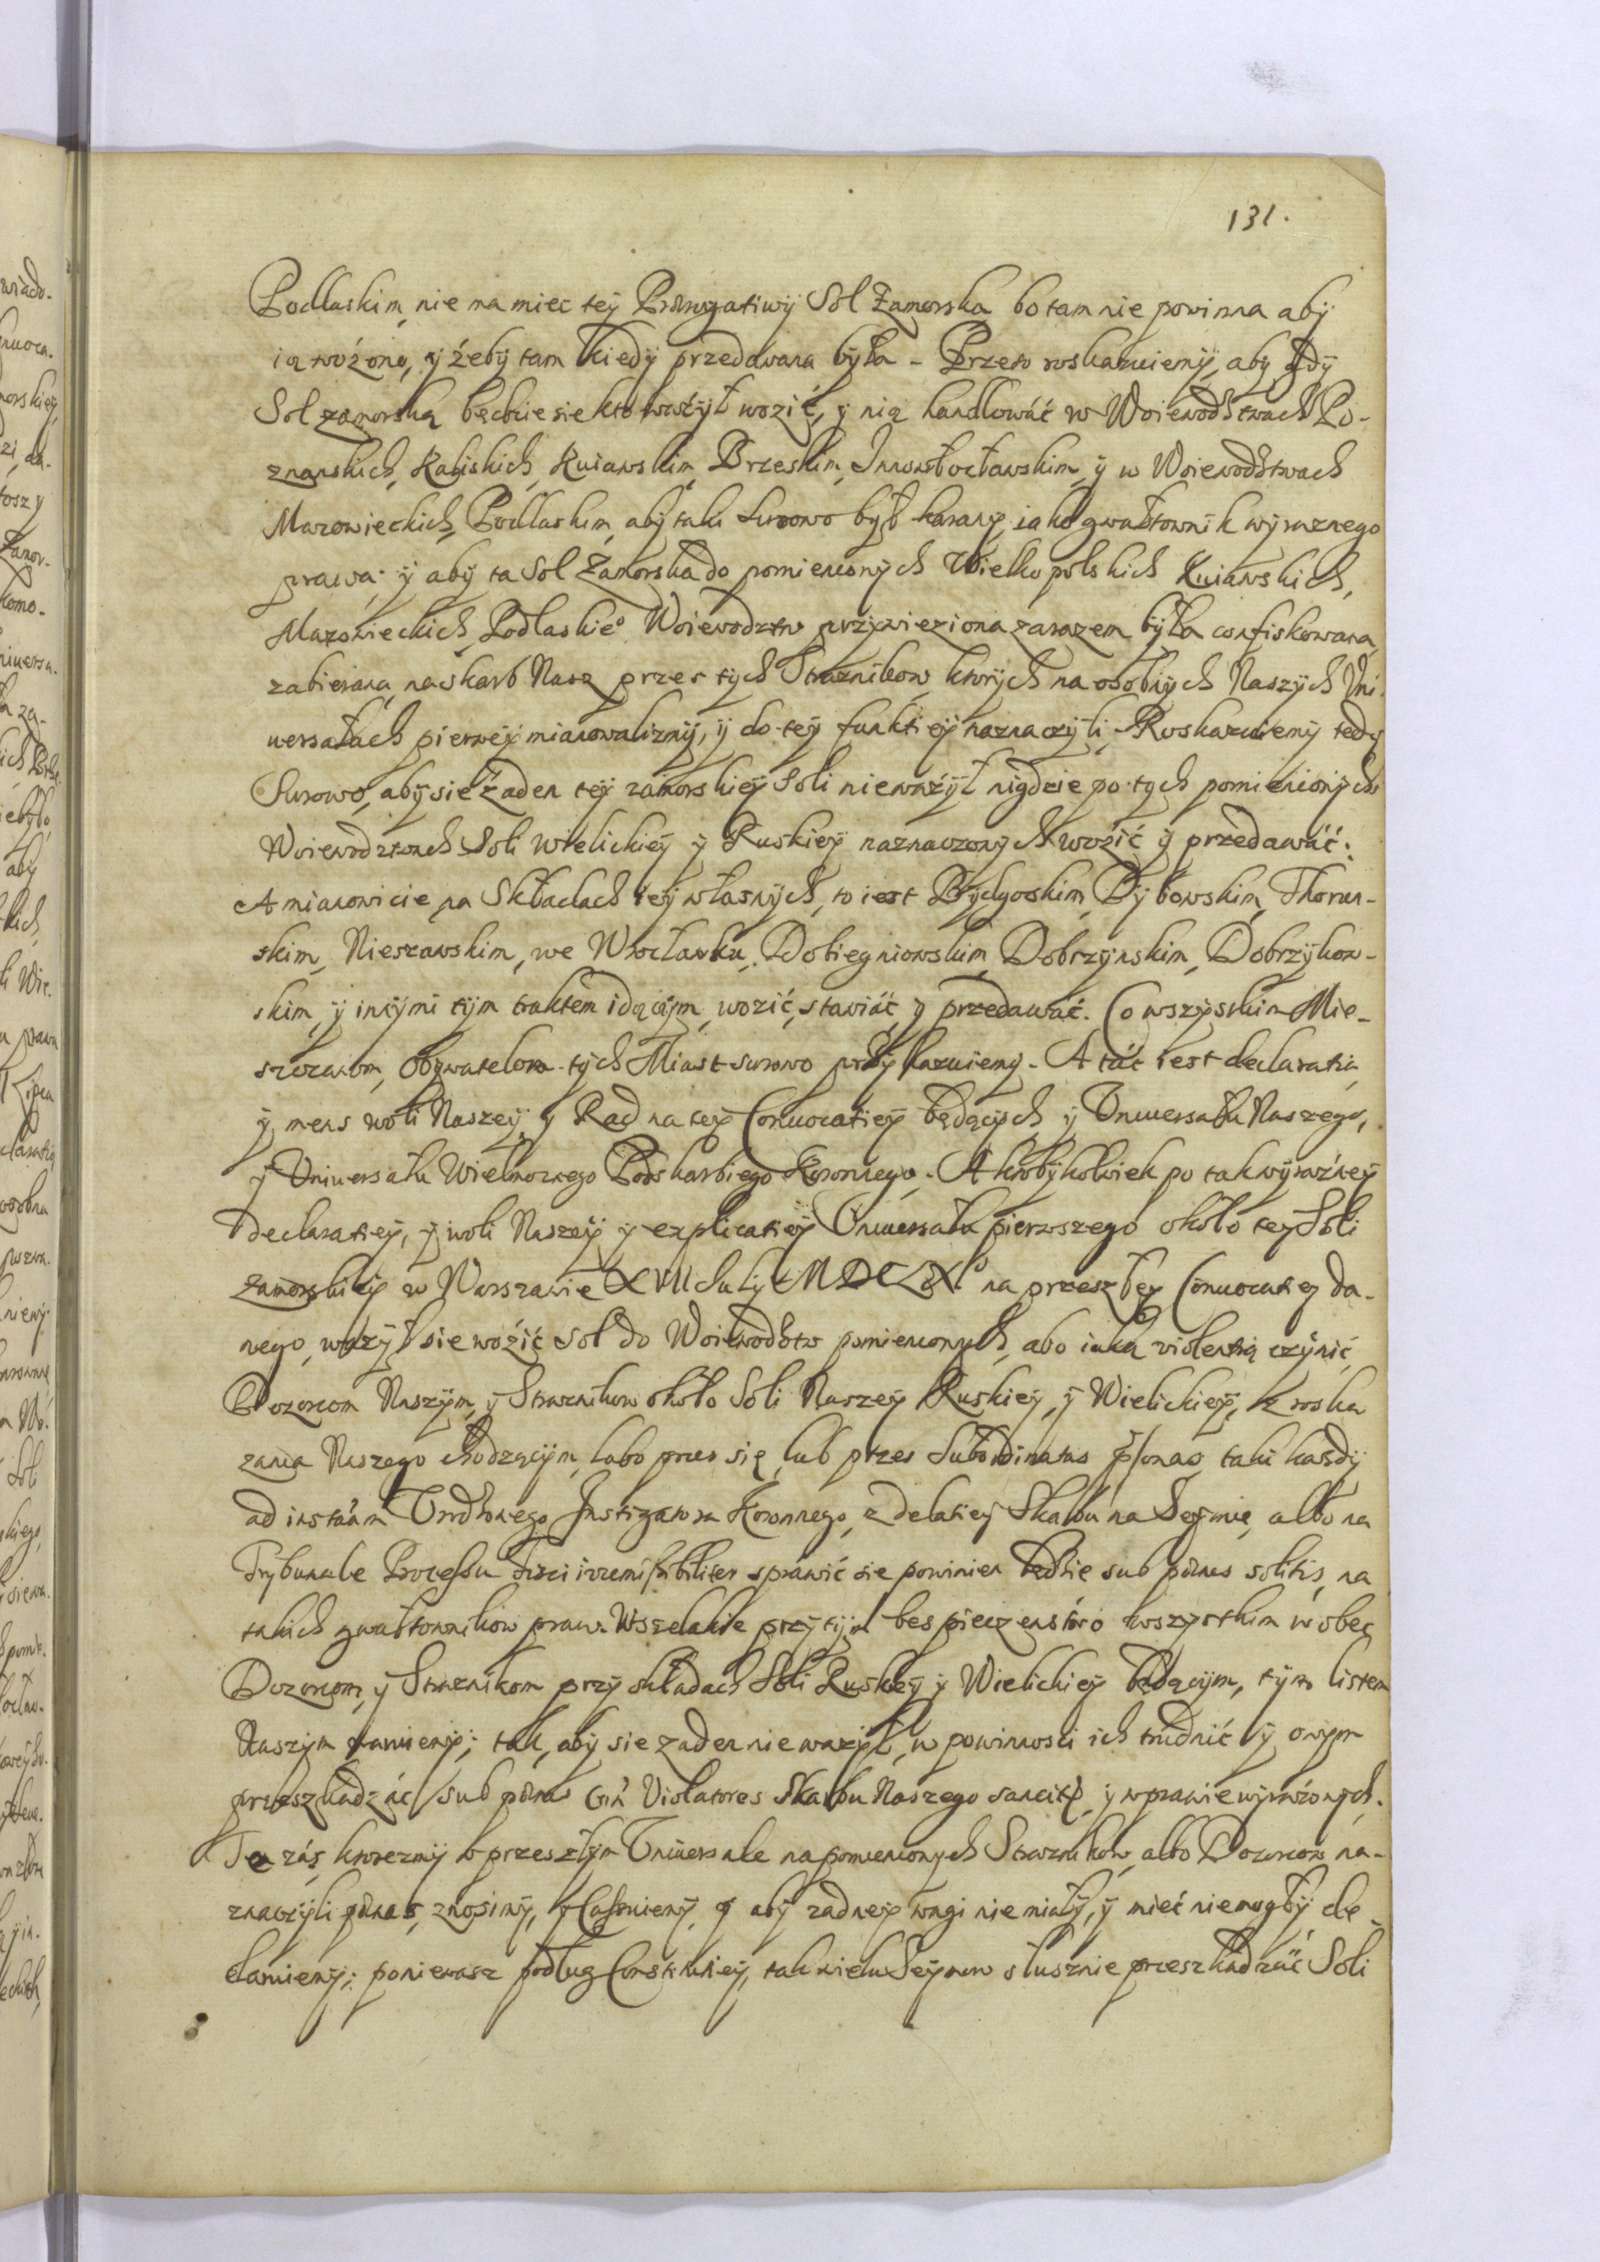 131.
Podlaskim, nie ma miec tey Prærogatiwy Sol Zamorska, bo tam nie powinna aby
ią wożono, y żeby tam kiedy przedawana była - Przeto roskazuiemy, aby gdy
Sol zamorską będzie sie kto ważył wozić, y nią handlowáć w Woiewodstwach Po-
znanskich, Kaliskich, Kuiawskim, Brzeskim, Inowłocławskim, y w Woiewodstwach
Mazowieckich, Podlaskim, aby taki surowo był karany, iako gwałtownik wyraznego
prawa; y aby ta Sol Zamorska do pomienionych Wielkopolskich Kuiawskich,
Mazowieckich, Podlaskie° Woiewodztw przywieziona zarazem była confiskowana,
zabierana na skarb Nasz przez tych Straznikow, ktorych na osobnych Naszych Vni-
wersałach pierwey mianowalismy, y do tey funktiey naznaczyli. Roskazuiemy tedy
Surowo, aby sie żaden tey zamorskiey Soli nieważył nigdzie po tych pomienionych
Woiewodztwach Soli Wielickiey y Ruskiey naznaczonych wozić y przedawáć;
A mianowicie na Składach iey własnych, to iest Bydgoskim, Dybowskim, Thorun-
skim, Nieszawskim, we Wrocławku, Dobiegniowskim, Dobrzynskim, Dobrzykow-
skim, y inszymi tym traktem idącym, wozić, stawiáć, y przedawáć. Co wszystkim Mie-
szczanom, Obywatelom tych Miast surowo przykazuiemy. A táć iest declaratia,
y mens woli Naszey, y Rad na tey Conuocatiey będących, y Vniuersału Naszego,
y Vniuersału Wielmoznego Podskarbiego Koronnego. A ktobykolwiek po tak wyrażney
declaratiey, y woli Naszey y explicatiey Vniuersału pierwszego około tey Soli
zamorskiey w Warszawie XVII July MDCLX° na przeszłey Conuocatiey da-
nego, ważył sie wozić Sol do Woiewodstw pomienionych, abo iaką violentią czynić
Dozorcom Naszym, y Straznikow około Soli Naszey Ruskiey, y Wielickiey, z roska
zania Naszego chodzącym, labo przez się, lub przez Subordinatas psonas, taki każdy
ad instãm Vrodzonego Instigatora Koronnego, z delatiey Skarbu na Seymie, albo na
Trybunale Processu Fisci irremissibiliter sprawić sie powinien będzie sub pænis solitis, na
takich gwałtownikow praw. Wszelakie przytym bespieczenstwo wszystkim w obec
Dozorcom, y Straznikom przy składach Soli Ruskiey y Wielickiey będącym, tym listem
Naszym waruiemy; tak, aby sie zaden nie wazył, w powinnosci ich trudnić y onym
przeszkadzać sub pænis Violatores Skarbu Naszego sancitis, y w prawie wyrażonych.
Te zás, ktoresmy w przeszłym Vniuersale na pomienionych Straznikow, albo Dozorcow na-
znaczyli pænas, znosimy, y Cassuiemy, y aby zadney wagi nie miały, y mieć niemogły de-
claruiemy; poniewasz podług Constitutiey, tak wielu Seymow słusznie przeszkadzáć Soli